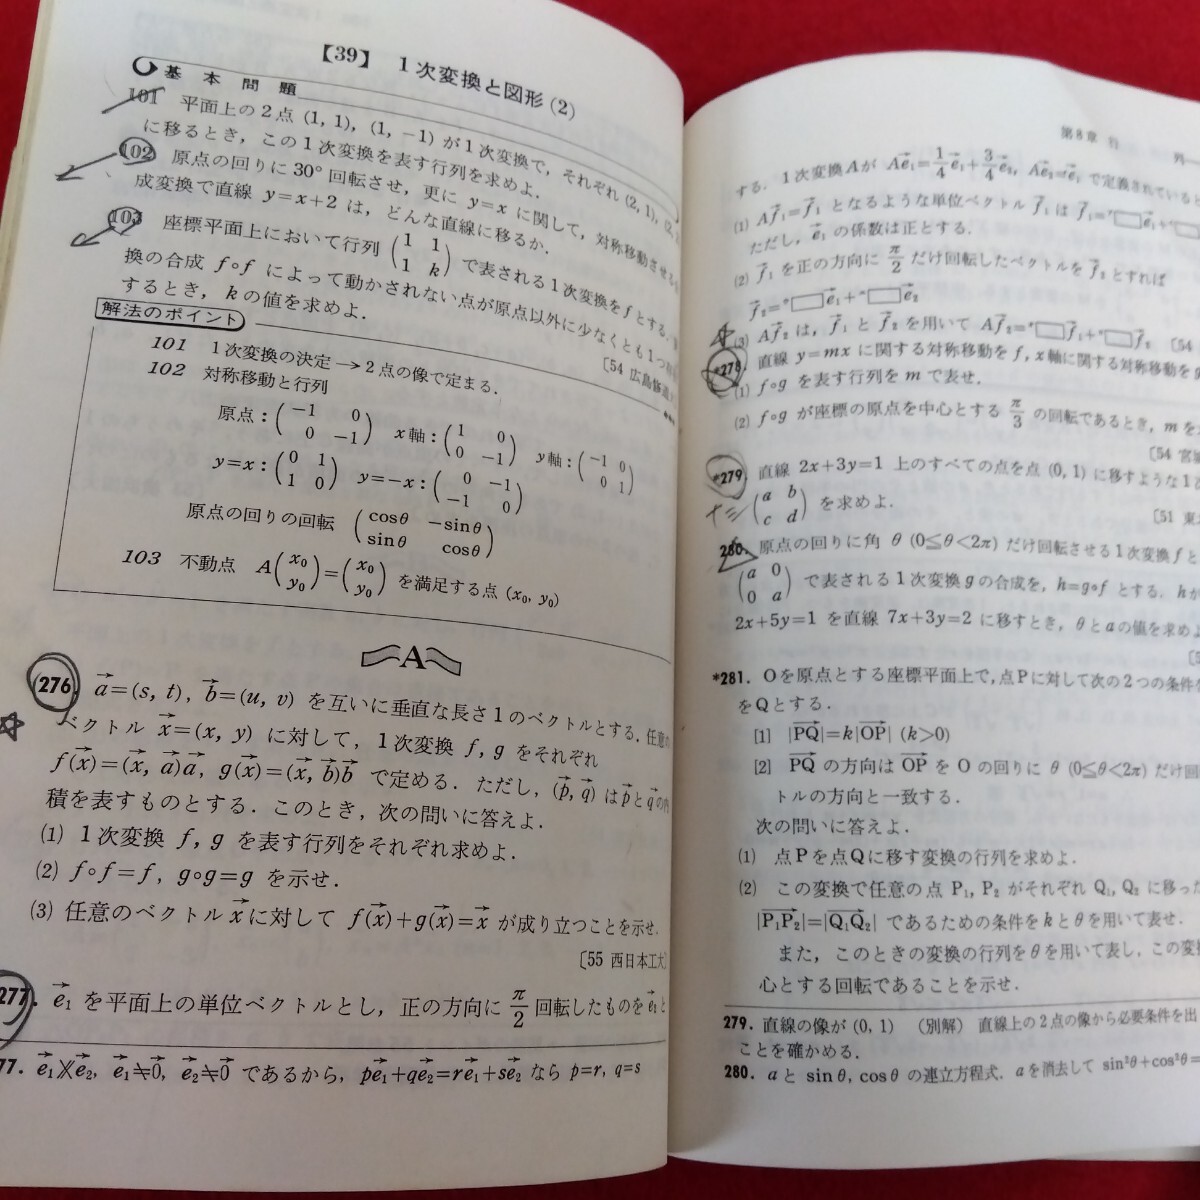 【39】 1次変換と図形(2)
基本問題
101 平面上の2点 (1, 1), (1, −1) が1次変換で, それぞれ (2, 1), (2,
に移るとき, この1次変換を表す行列を求めよ.
102 原点の回りに30°回転させ, 更に y=x に関して, 対称移動させる
成変換で直線 y=x+2 は, どんな直線に移るか.
103 座標平面上において行列 (1 1
1 k) で表される1次変換を f とする.
換の合成 f∘f によって動かされない点が原点以外に少なくとも1つ
するとき, k の値を求めよ.
〔54 広島修道
解法のポイント
101 1次変換の決定→2点の像で定まる.
102 対称移動と行列
原点:(−1 0
0 −1) x軸:(1 0
0 −1) y軸:(−1 0
0 1)
y=x:(0 1
1 0) y=−x:(0 −1
−1 0)
原点の回りの回転 (cosθ −sinθ
sinθ cosθ)
103 不動点 A(x₀
y₀)=(x₀
y₀) を満足する点 (x₀, y₀)
A
276. a⃗=(s, t), b⃗=(u, v) を互いに垂直な長さ1のベクトルとする. 任意の
ベクトル x⃗=(x, y) に対して, 1次変換 f, g をそれぞれ
f(x⃗)=(x⃗, a⃗)a⃗, g(x⃗)=(x⃗, b⃗)b⃗ で定める. ただし, (p⃗, q⃗) は p⃗ と q⃗ の内
積を表すものとする. このとき, 次の問いに答えよ.
(1) 1次変換 f, g を表す行列をそれぞれ求めよ.
(2) f∘f=f, g∘g=g を示せ.
(3) 任意のベクトル x⃗ に対して f(x⃗)+g(x⃗)=x⃗ が成り立つことを示せ.
〔55 西日本工大〕
277. e⃗₁ を平面上の単位ベクトルとし, 正の方向に π/2 回転したものを e⃗₂ と
77. e⃗₁∦e⃗₂, e⃗₁≠0⃗, e⃗₂≠0⃗ であるから, pe⃗₁+qe⃗₂=re⃗₁+se⃗₂ なら p=r, q=s
第8章 行
する. 1次変換 A が Ae⃗₁=1/4 e⃗₁+3/4 e⃗₂, Ae⃗₂=e⃗₁ で定義されていると
(1) Af⃗₁=f⃗₁ となるような単位ベクトル f⃗₁ は f⃗₁=□e⃗₁+□
ただし, e⃗₁ の係数は正とする.
(2) f⃗₁ を正の方向に π/2 だけ回転したベクトルを f⃗₂ とすれば
f⃗₂=□e⃗₁+□e⃗₂
(3) Af⃗₂ は, f⃗₁ と f⃗₂ を用いて Af⃗₂=□f⃗₁+□f⃗₂ 〔54
*278. 直線 y=mx に関する対称移動を f, x軸に関する対称移動を
(1) f∘g を表す行列を m で表せ.
(2) f∘g が座標の原点を中心とする π/3 の回転であるとき, m を
〔54 宮城
*279. 直線 2x+3y=1 上のすべての点を点 (0, 1) に移すような1
(a b
c d) を求めよ.
〔51 東
280. 原点の回りに角 θ (0≦θ<2π) だけ回転させる1次変換 f と
(a 0
0 a) で表される1次変換 g の合成を, h=g∘f とする. h が
2x+5y=1 を直線 7x+3y=2 に移すとき, θ と a の値を求め
*281. Oを原点とする座標平面上で, 点Pに対して次の2つの条件を
をQとする.
[1] |PQ⃗|=k|OP⃗| (k>0)
[2] PQ⃗ の方向は OP⃗ を O の回りに θ (0≦θ<2π) だけ回
トルの方向と一致する.
次の問いに答えよ.
(1) 点Pを点Qに移す変換の行列を求めよ.
(2) この変換で任意の点 P₁, P₂ がそれぞれ Q₁, Q₂ に移った
|P₁P₂⃗|=|Q₁Q₂⃗| であるための条件を k と θ を用いて表せ.
また, このときの変換の行列を θ を用いて表し, この変
心とする回転であることを示せ.
279. 直線の像が (0, 1) (別解) 直線上の2点の像から必要条件を出
ことを確かめる.
280. a と sinθ, cosθ の連立方程式. a を消去して sin²θ+cos²θ=